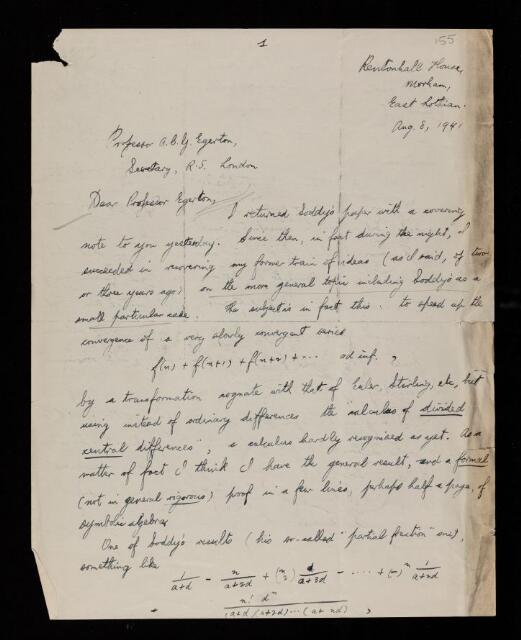 1
155
Rentonhall House,
Morham,
East Lothian.
Aug. 8, 1941
Professor A.C.G. Egerton,
Secretary, R.S. London
Dear Professor Egerton,
I returned Soddy's paper with a covering
note to you yesterday. Since then, in fact during the night, I
succeeded in recovering my former train of ideas (as I said, of two
or three years ago) on the more general topic including Soddy's as a
small particular case. The subject is in fact this: to speed up the
convergence of a very slowly convergent series
f(n) + f(n+1) + f(n+2) + ... ad inf. ,
by a transformation cognate with that of Euler, Stirling, etc, but
using instead of ordinary differences the "calculus of divided
central differences", a calculus hardly recognised as yet. As a
matter of fact I think I have the general result, and a formal
(not in general rigorous) proof in a few lines, perhaps half a page, of
symbolic algebra.
One of Soddy's results (his so-called "partial fraction" one),
something like
1/(a+d) - n/(a+2d) + (n 2) 1/(a+3d) - ..... + (-)^n 1/(a+nd)
= n! d^n / (a+d)(a+2d)...(a+nd) ,